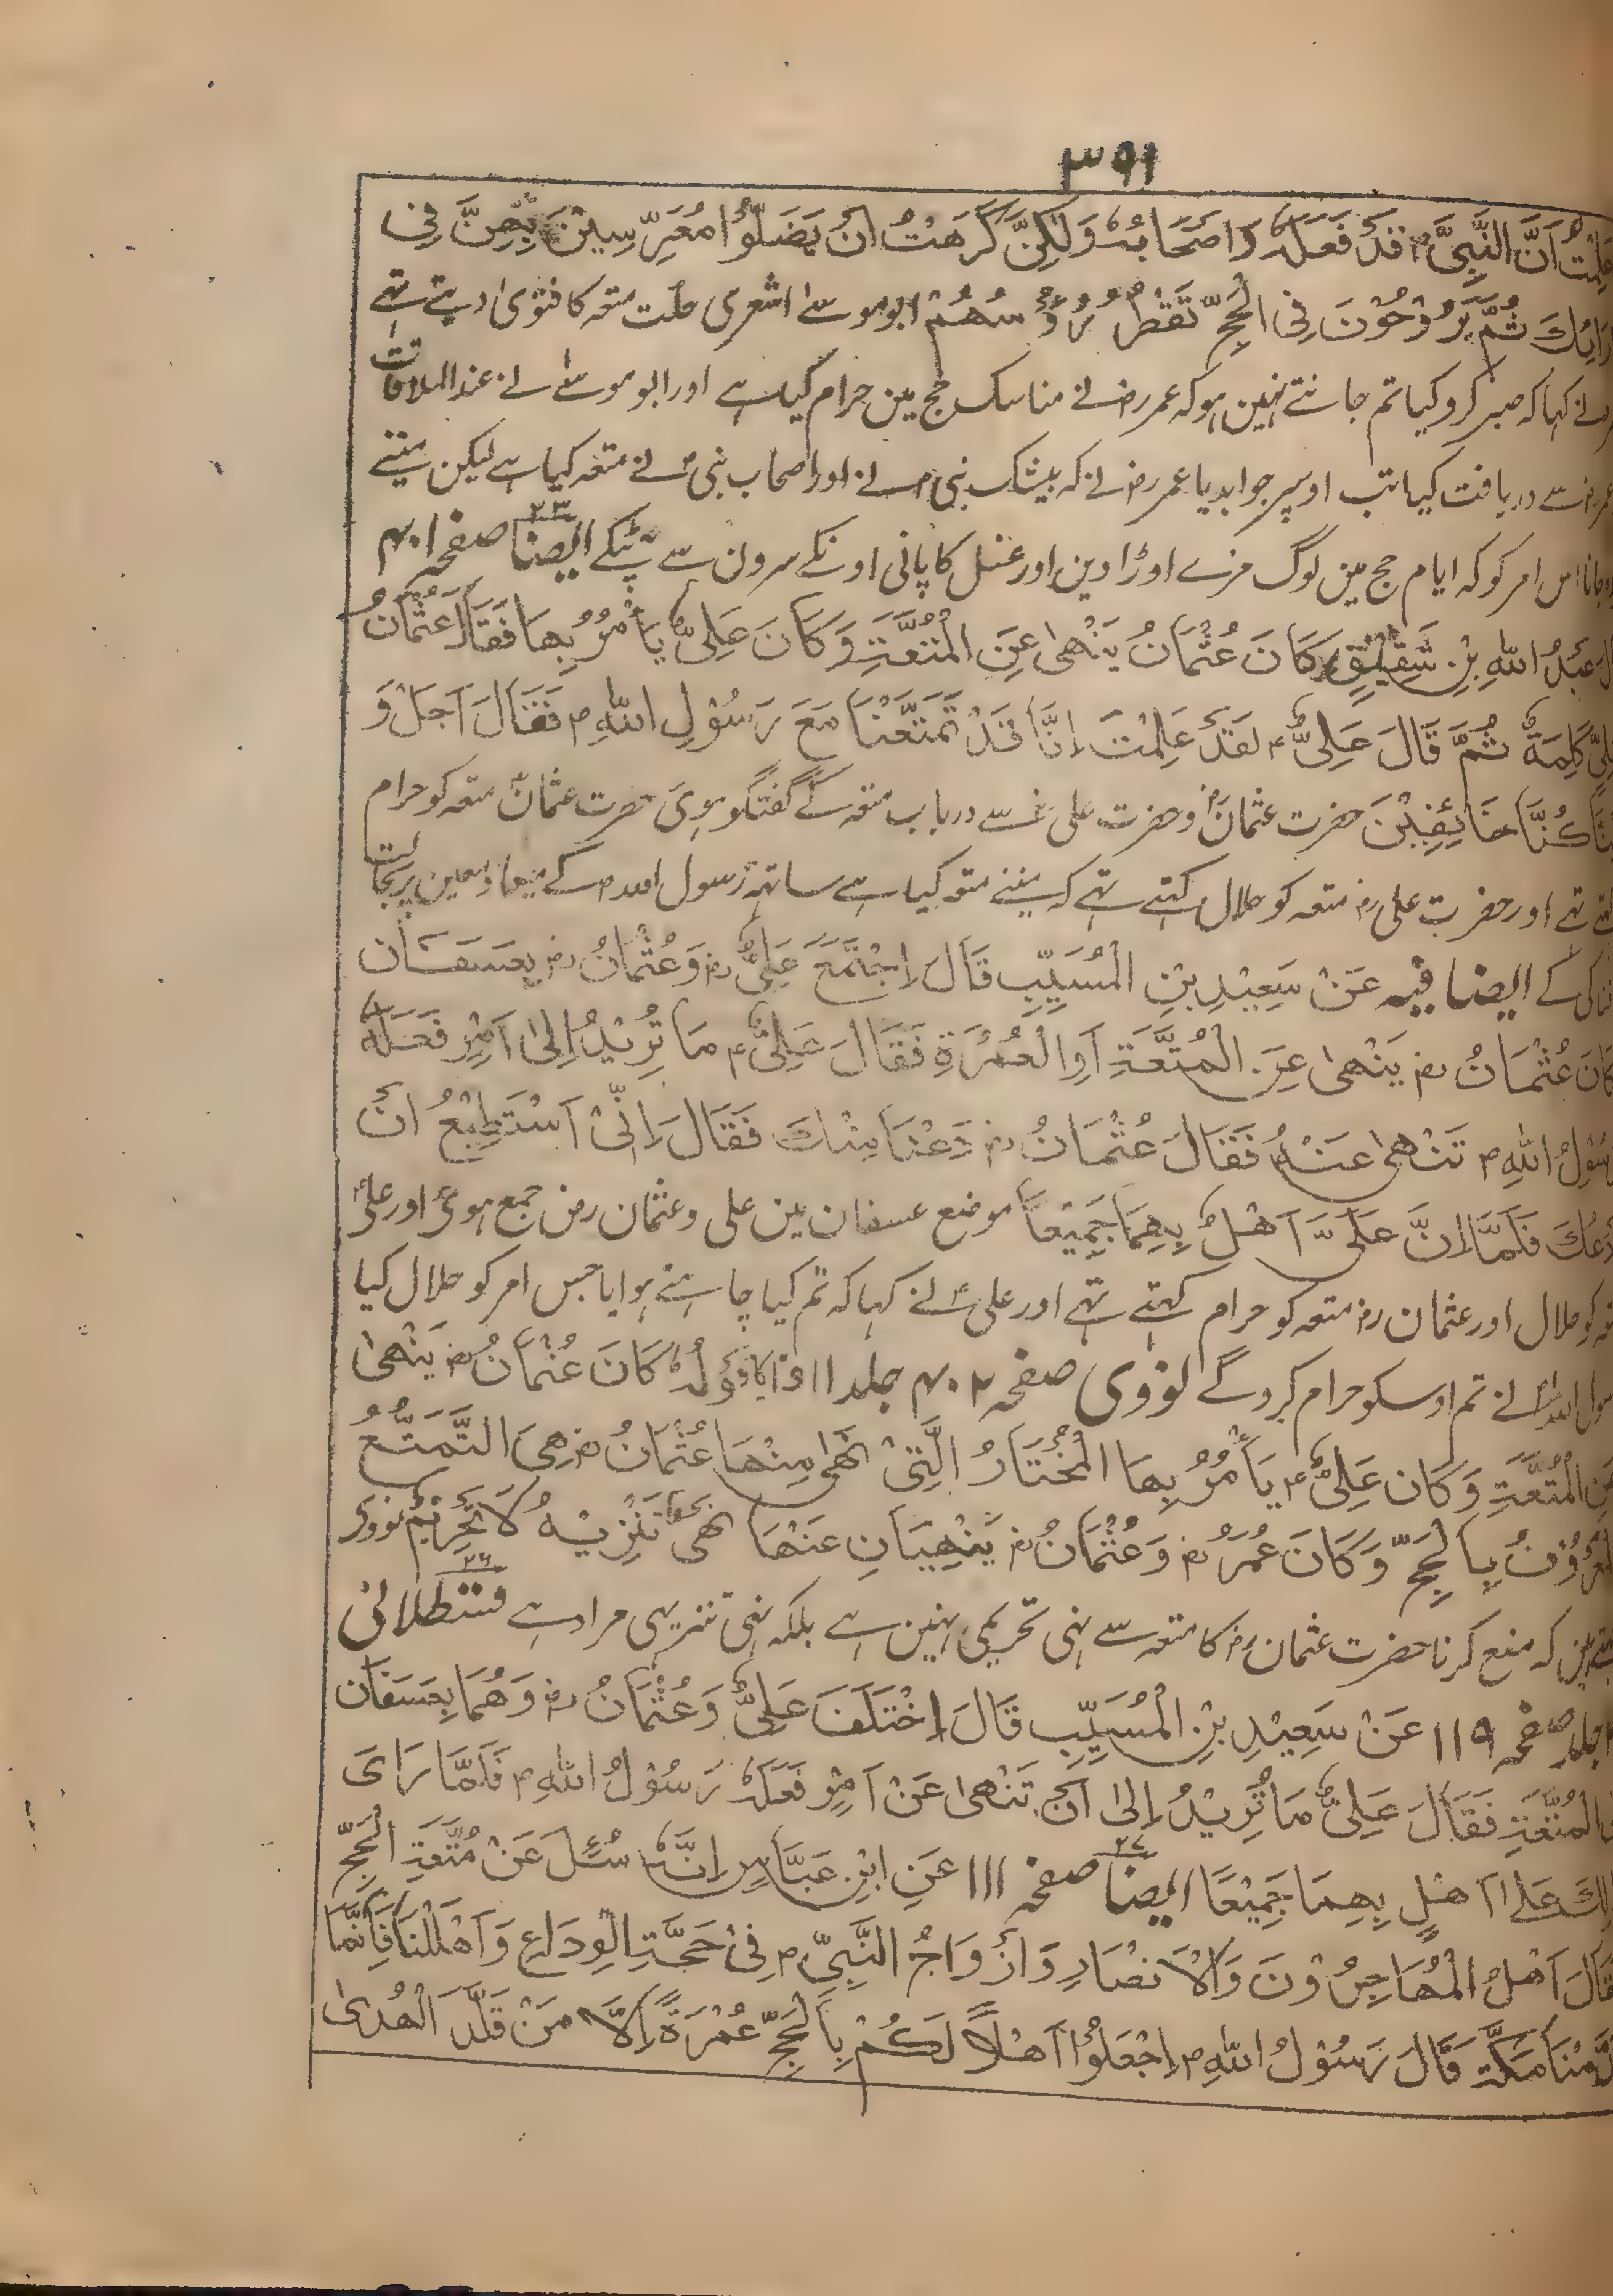 ٣٩١
عَلِمْتُ اَنَّ النَّبِیَّ م قَدْ فَعَلَهُ وَاَصْحَابُهُ وَلٰکِنَّ کَرِهْتُ اَنْ یَضَلُّوْا مُعَرِّسِیْنَ بِهِنَّ فِی
رَائِكَ ثُمَّ یَرُوْحُوْنَ فِی الْحَجِّ تَقْطُرُ رُؤُسُهُمْ ابوموسےٰ اشعری حلّت متعہ کا فتویٰ دیتے تہے
نے کہا کہ صبر کرو کیا تم جانتے نہین ہو کہ عمر رض نے مناسک حج مین حرام کیا ہے اور ابو موسےٰ نے عند الملاقات
عمر رض سے دریافت کیا تب اوسپر جواب دیا عمر رض نے کہ بیشک نبی م نے اور اصحاب نبی م نے متعہ کیا ہے لیکن مینے
جانا اس امر کو کہ ایام حج مین لوگ مزے اوڑاوین اور غسل کا پانی اونکے سرون سے ٹپکے ایضا ٢٣ صفحہ ۴۰۱
عَبْدُ اللّٰهِ بْنِ شَقِیْقٍ کَانَ عُثْمَانُ یَنْهٰی عَنِ الْمُتْعَةِ وَکَانَ عَلِیٌّ یَأْمُرُ بِهَا فَقَالَ عُثْمَانُ
کَلِمَةً ثُمَّ قَالَ عَلِیٌّ ۴ لَقَدْ عَلِمْتَ اِنَّا قَدْ تَمَتَّعْنَا مَعَ رَسُوْلِ اللّٰهِ م فَقَالَ اَجَلْ وَ
کُنَّا خَائِفِیْنَ حضرت عثمان رض و حضرت علی رض سے درباب متعہ کے گفتگو ہوی حضرت عثمان رض متعہ کو حرام
تہے اور حضرت علی رض متعہ کو حلال کہتے تہے کہ مینے متعہ کیا ہے ساتہہ رسول اللہ م کے میعاد معین پر بحالت
کے ایضا فیہ عَنْ سَعِیْدِ بْنِ الْمُسَیِّبِ قَالَ اِجْتَمَعَ عَلِیٌّ رض وَعُثْمَانُ رض بِعَسَفَان
کَانَ عُثْمَانُ رض یَنْهٰی عَنِ الْمُتَّعَةِ اَوِ الْعُمْرَةِ فَقَالَ عَلِیٌّ ۴ مَا تُرِیْدُ اِلٰی اَمْرٍ فَعَلَهُ
رَسُوْلُ اللّٰهِ م تَنْهٰی عَنْهُ فَقَالَ عُثْمَانُ رض دَعْنَا مِنْكَ فَقَالَ اِنِّیْ اَسْتَطِیْعُ اَنْ
دَعُكَ فَلَمَّا اِنَّ عَلَیَّ اَهْلُ بِهِمَا جَمِیْعًا موضع عسفان مین علی و عثمان رض جمع ہوئے اور علی ۴
کو حلال اور عثمان رض متعہ کو حرام کہتے تہے اور علی ۴ نے کہا کہ تم کیا چاہتے ہو آیا جس امر کو حلال کیا
رسول اللہ م نے تم اوسکو حرام کروگے نووی صفحہ ۴۰۲ جلد ۱ قَوْلُهُ کَانَ عُثْمَانُ رض یَنْهٰی
عَنِ الْمُتَّعَةِ وَکَان عَلِیٌّ ۴ یَأْمُرُ بِهَا الْمُخْتَارُ الَّتِیْ نَهٰی مِنْهَا عُثْمَانُ رض هِیَ التَّمَتُّعُ
بِالْحَجِّ وَکَانَ عُمَرُ رض وَعُثْمَانُ رض یَنْهِیَانِ عَنْهَا نَهْیَ تَنْزِیْهُ لَا تَحْرِیْمٌ نووی
ہین کہ منع کرنا حضرت عثمان رض کا متعہ سے نہی تحریمی نہین ہے بلکہ نہی تنزیہی مراد ہے قسطلانی ٢٦
جلد صفحہ ۱۱۹ عَنْ سَعِیْدِ بْنِ الْمُسَیِّبِ قَالَ اِخْتَلَفَ عَلِیٌّ وَعُثْمَانُ رض وَهُمَا بِعَسَفَان
الْمُتَّعَةِ فَقَالَ عَلِیٌّ مَا تُرِیْدُ اِلٰی اَنْ تَنْهٰی عَنْ اَمْرٍ فَعَلَهُ رَسُوْلُ اللّٰهِ م فَلَمَّا رَاٰی
ذٰلِكَ عَلٰی اَهْلٍ بِهِمَا جَمِیْعًا ایضا ٢٧ صفحہ ۱۱۱ عَنِ ابْنِ عَبَّاسٍ اِنَّهُ سُئِلَ عَنْ مُتَّعَةِ الْحَجِّ
فَقَالَ اَهْلُ الْمُهَاجِرُوْنَ وَالْاَنْصَارِ وَاَزْوَاجُ النَّبِیِّ م فِیْ حَجَّةِ الْوِدَاعِ وَاَهْلَلْنَا فَاَنَّمَا
قَدِمْنَا مَکَّةَ قَالَ رَسُوْلُ اللّٰهِ م اِجْعَلُوْا اَهْلًا لَکُمْ بِالْحَجِّ عُمْرَةً اِلَّا مَنْ قَلَّدَ الْهُدٰی